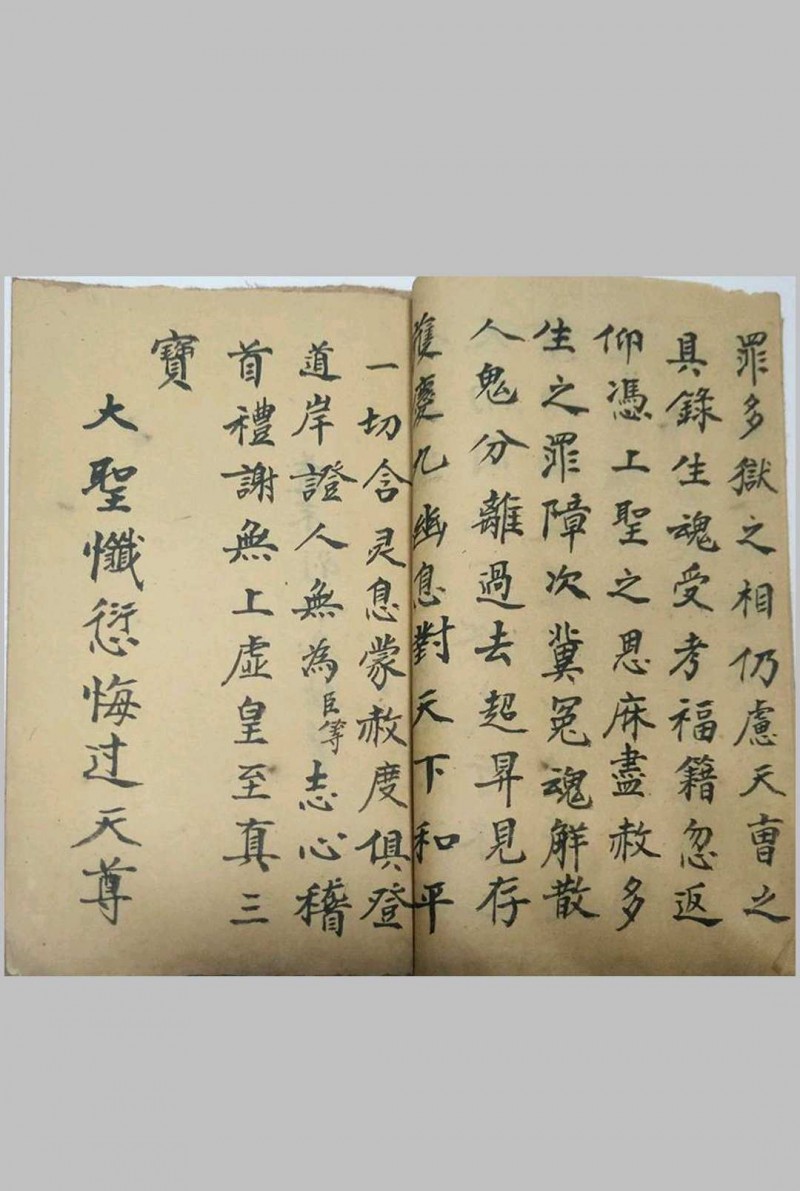 罪多獄之相仍慮天曺之
具錄生魂受考福籍忽返
仰憑上聖之恩庥盡赦多
生之罪障次冀冤魂觧散
人鬼分離過去超昇見存
獲慶九幽息對天下和平
一切含灵息蒙赦度俱登
道岸證人無為臣等志心稽
首禮謝無上虛皇至真三
寶
大聖懺愆悔过天尊